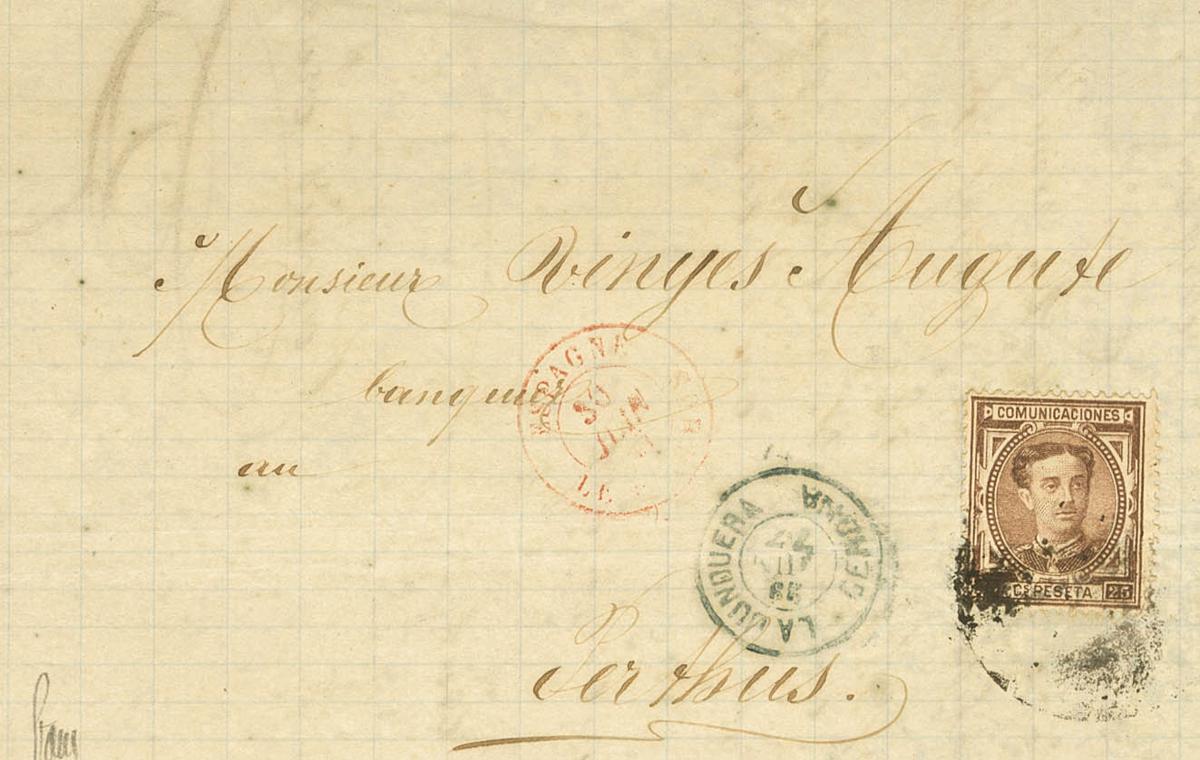 Monsieur Vinyes Auguste
banquier
au
Perthus.
ESPAGNE
30
JUIN
LE
LA JUNQUERA GERONA
COMUNICACIONES
Cs PESETA 25